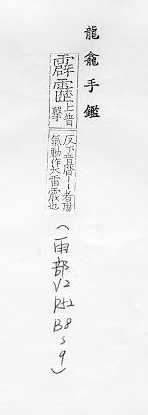 龍龕手鑑
霹靂上普擊
反下音曆丨丨者陽
氣動作大雷震也
(雨部V2 B8 9)